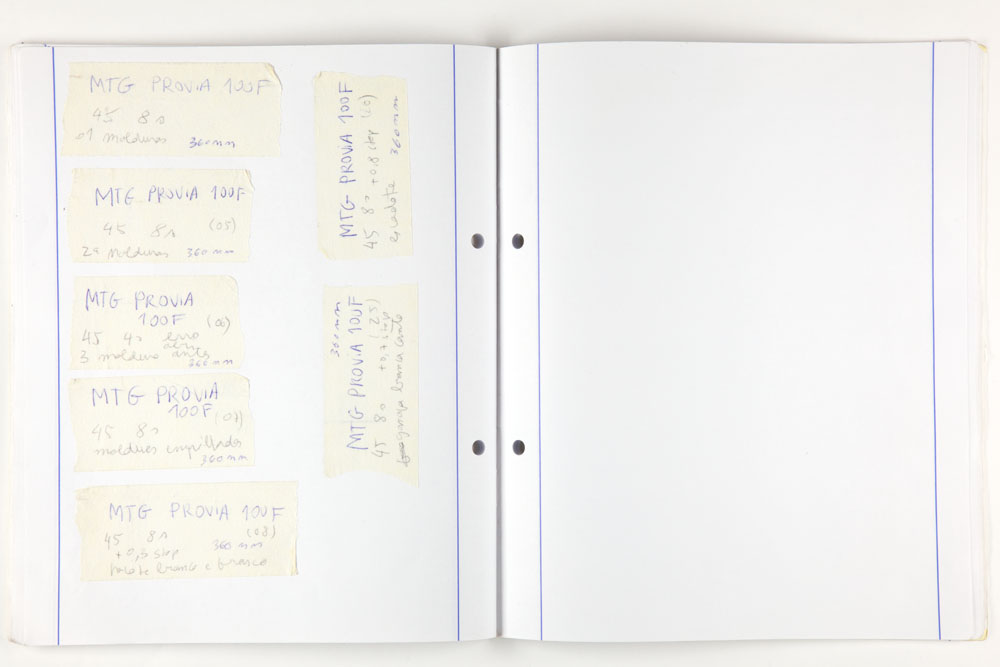 MTG PROVIA 100F
45 8s
01 molduras 360mm
MTG PROVIA 100F
45 8s (05)
2ª molduras 360mm
MTG PROVIA
100F (06)
45 4s erro
abri
3 moldura antes
360mm
MTG PROVIA
100F (07)
45 8s
molduras empilhadas
360mm
MTG PROVIA 100F
45 8s (08)
+0,3 step 360mm
pacote branco e frasco
MTG PROVIA 100F
45 8s +0,8 step
360mm
360mm
MTG PROVIA 100F
45 8s +0,7 step (23)
branca canto